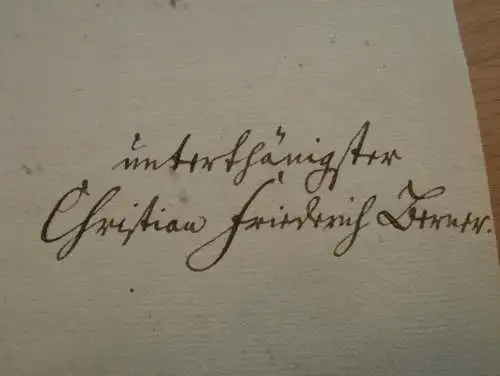 unterthänigster
Christian Friederich Berner.